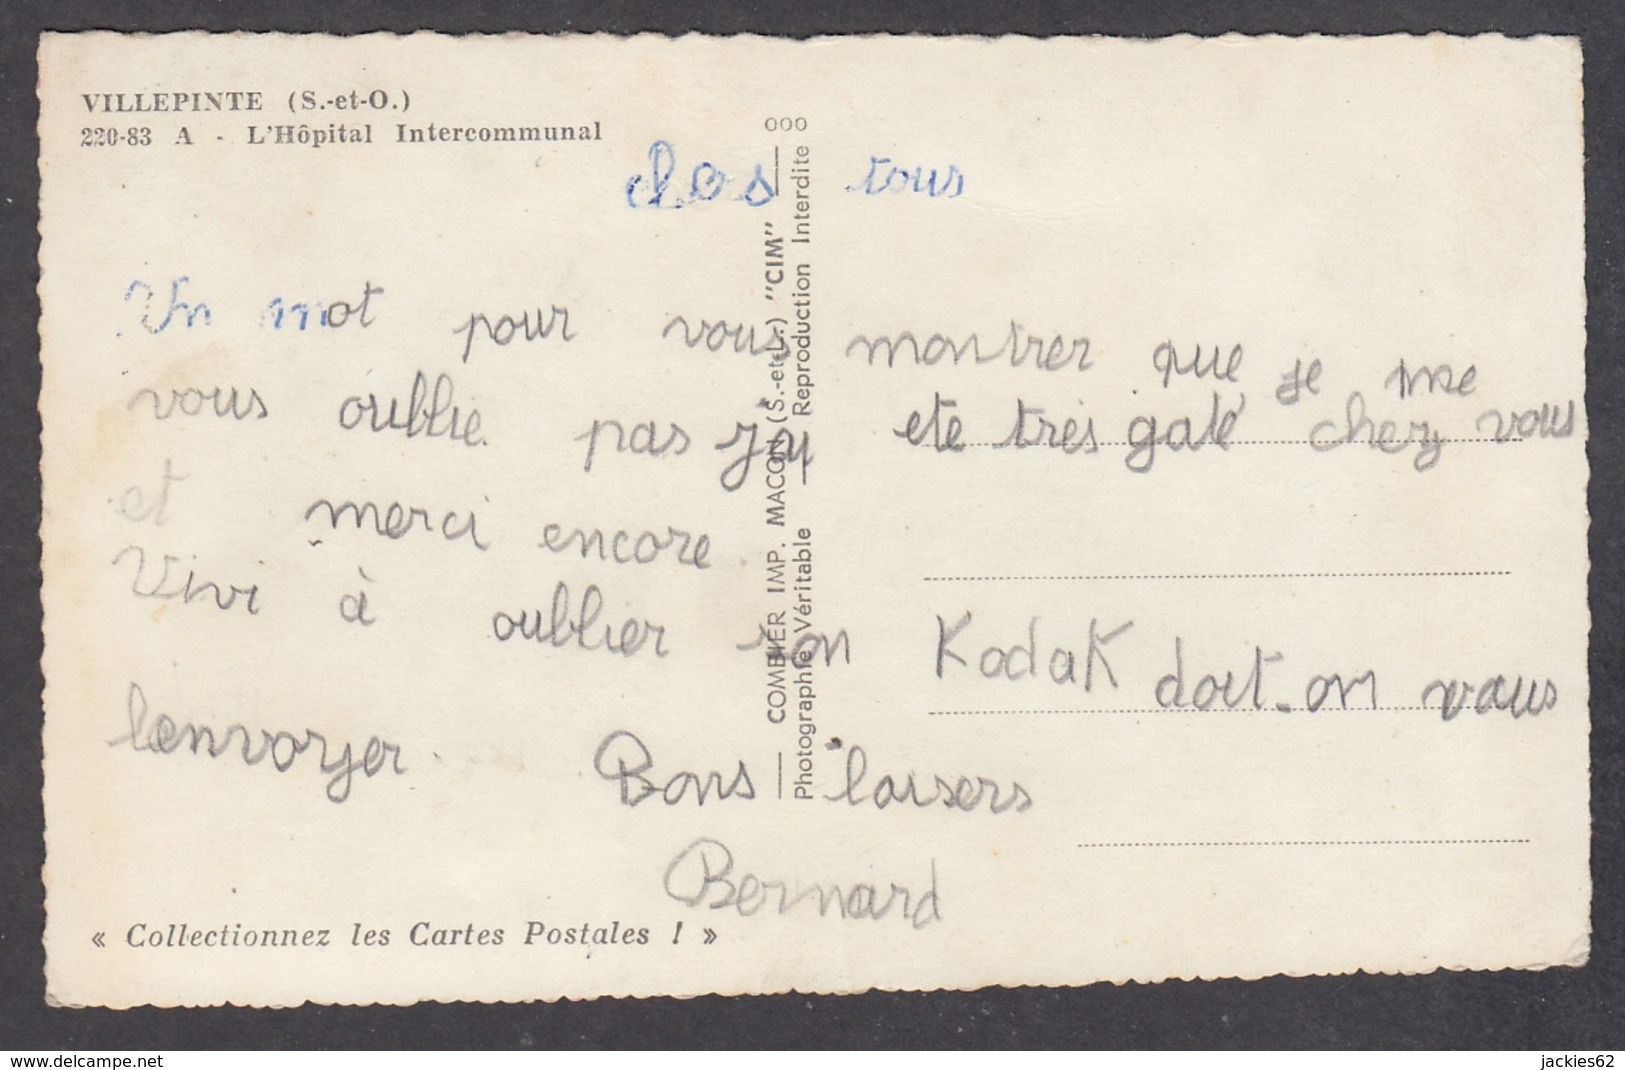 VILLEPINTE (S.-et-O.)
220-83 A - L'Hôpital Intercommunal
chers tous
Un mot pour vous montrer que je me
vous oublie pas j'ai eté très gaté chez vous
et merci encore.
Vivi à oublier son Kodak doit-on vous
lenvoyer. Bons baisers
Bernard
« Collectionnez les Cartes Postales ! »
COMBIER IMP. MACON (S.-et-L.) "CIM"
Photographie Véritable — Reproduction Interdite
www.delcampe.net
jackies62